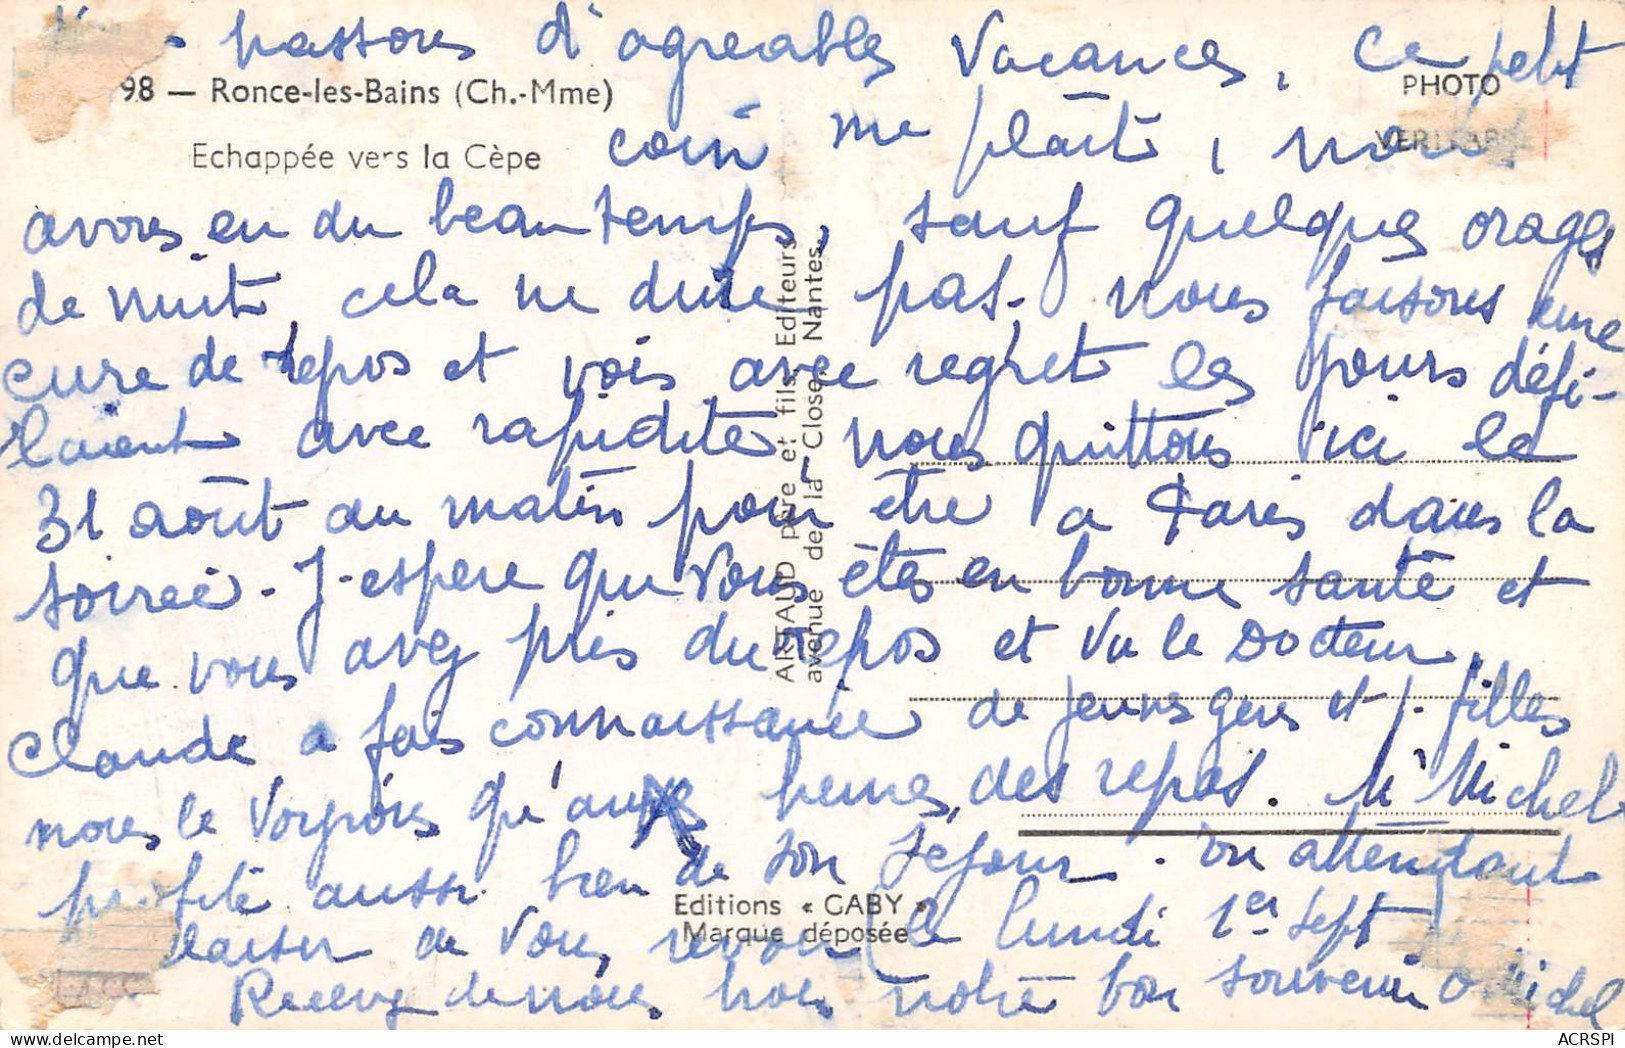 passons d'agréables vacances, ce petit
98 — Ronce-les-Bains (Ch.-Mme)
PHOTO
Echappée vers la Cèpe
coin me plait, nous
avons eu du beau temps, sauf quelques orages
de nuit, cela ne dure pas. nous faisons une
cure de repos et vois avec regret les jours défi-
laient avec rapidité, nous quittons ici le
31 août au matin pour être a Paris dans la
soireé - J'espere que vous êtes en bonne santé et
que vous avez pris du repos et vu le Docteur,
Claude a fais connaissance de jeunes gens et j. filles
nous le voyons qu'aux heures des repas. M. Michel
profité aussi bien de son séjour. En attendant
laisir de vous revoir le lundi 1er sept
Recevez de nous trois notre bon souvenir Michel
ARTAUD père et fils, Editeurs
avenue de la Close, Nantes.
Editions « GABY »
Marque déposée
ACRSPI